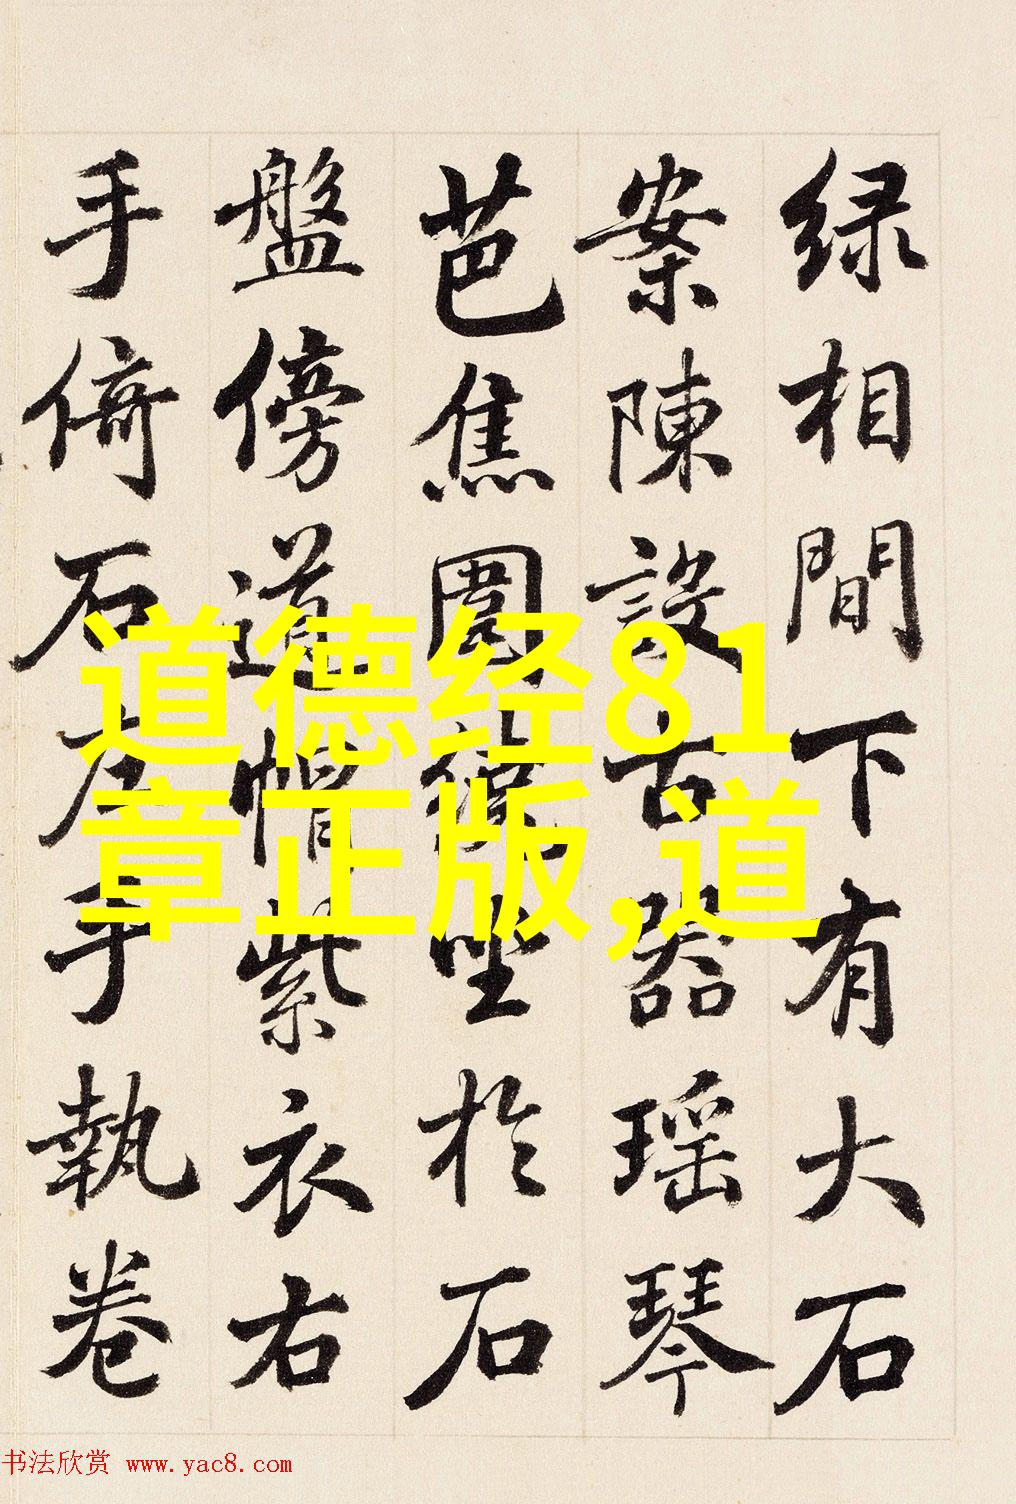 绿相間下有大石
案陳設古器瑶琴
芭焦圍繞坐於石
盤傍道帽紫衣右
手倚石左手執卷
道德经81
章正版,道
书法欣赏 www.yac8.com